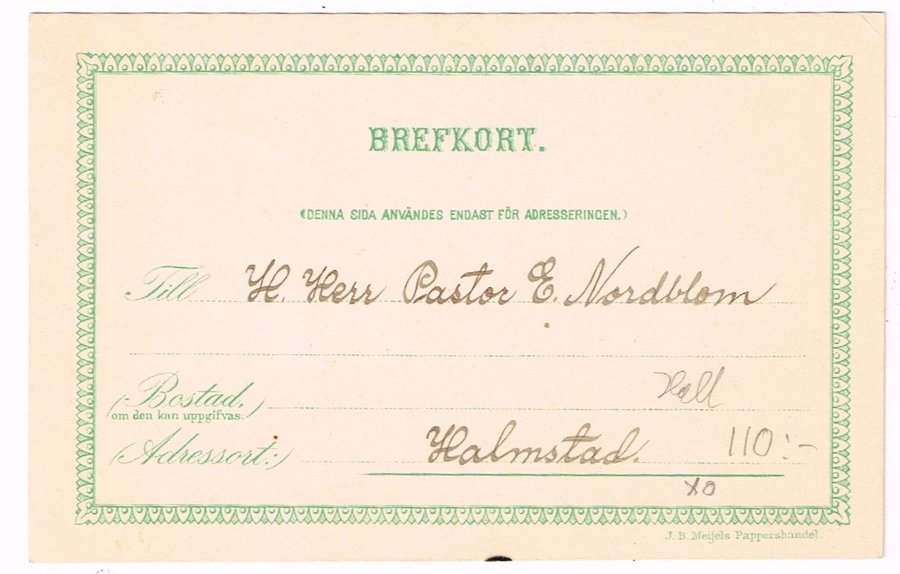 BREFKORT.
(DENNA SIDA ANVÄNDES ENDAST FÖR ADRESSERINGEN.)
Till H. Herr Pastor E. Nordblom
Hall
(Bostad,
om den kan uppgifvas:)
(Adressort:) Halmstad. 110:-
XO
J. B. Meijels Pappershandel.